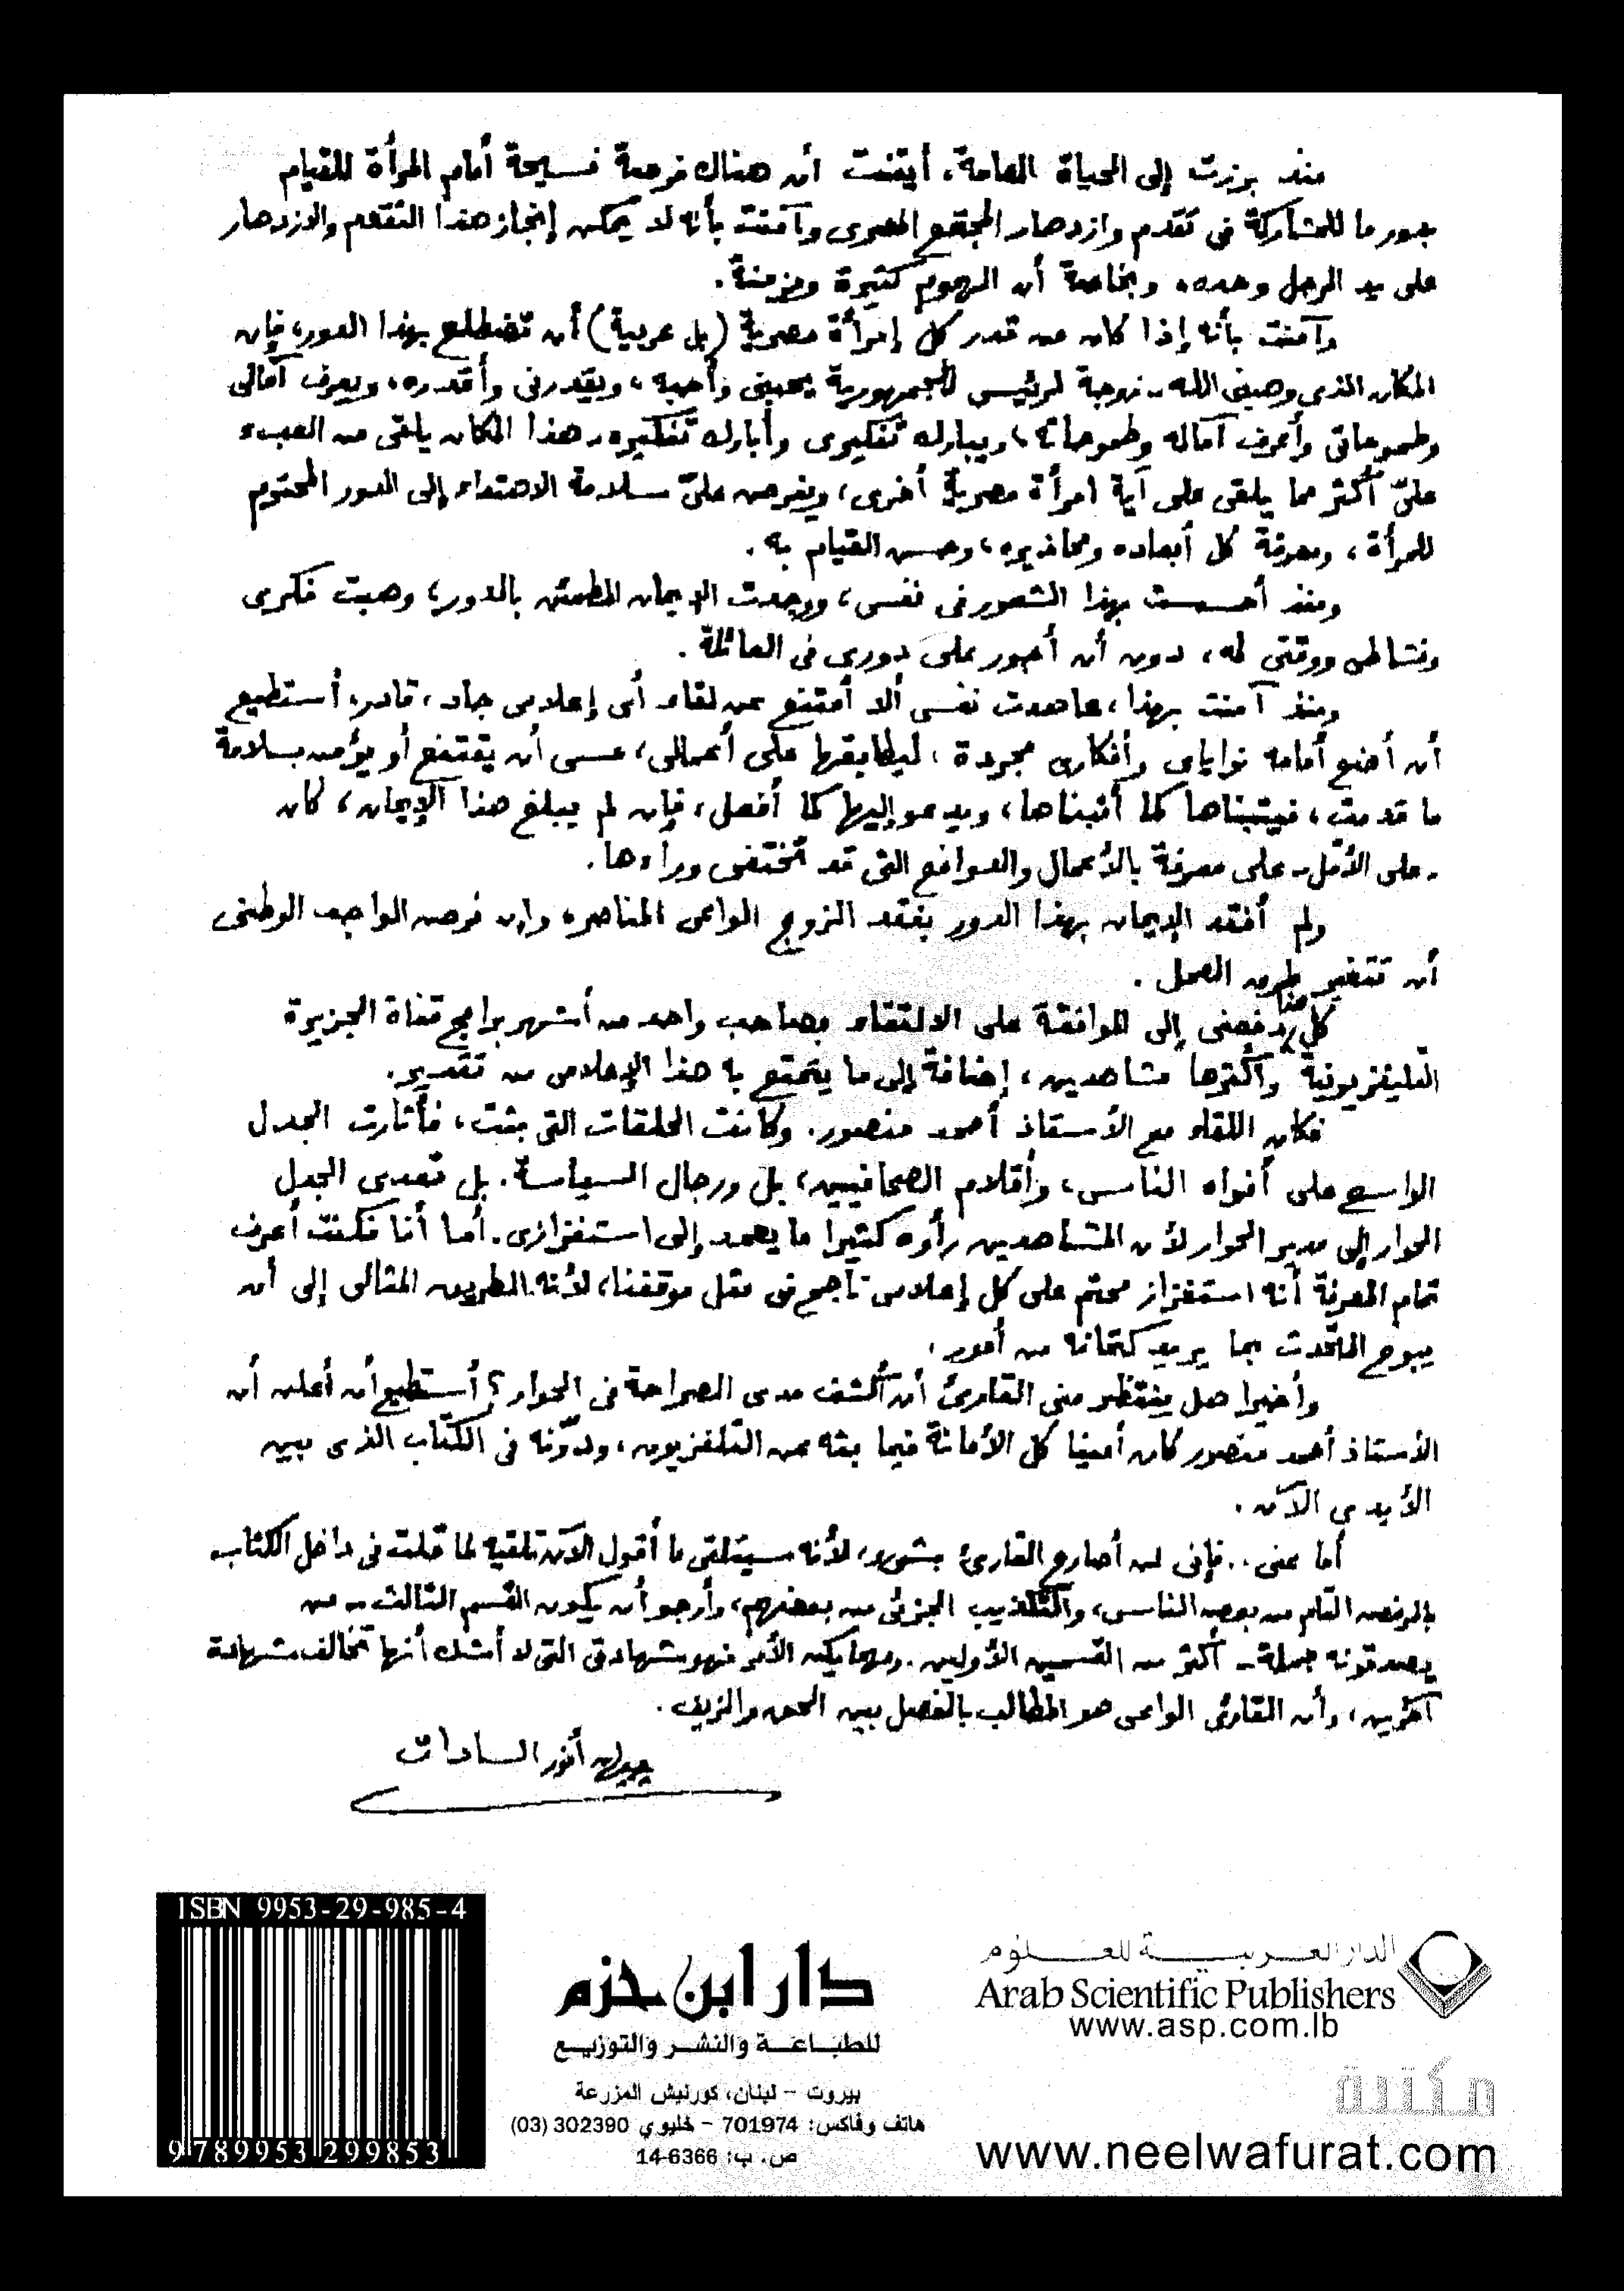 منذ برزت إلى الحياة العامة، أيقنت أن هناك فرصة فسيحة أمام المرأة للقيام
بدور ما للمشاركة في تقدم وازدهار المجتمع المصرى وآمنت بأنه لا يمكن إنجاز هذا التقدم والازدهار
على يد الرجل وحده، وبخاصة أن الهموم كثيرة ومزمنة.
وآمنت بأنه إذا كان من قدر كل إمرأة مصرية (بل عربية) أن تضطلع بهذا الدور، فإن
المكان الذى وهبنى الله - زوجة لرئيس للجمهورية يحبنى وأحبه، ويقدرنى وأقدره، ويعرف آمالى
وطموحاتى وأعرف آماله وطموحاته، ويبارك تفكيرى وأبارك تفكيره - هذا المكان يلقى من العبء
علىّ أكثر مما يلقى على آية امرأة مصرية أخرى، ويفرض علىّ سلامة الاهتداء إلى الدور المحتوم
للمرأة، ومعرفة كل أبعاده ومحاذيره، وحسن القيام به.
ومنذ أحسست بهذا الشعور فى نفسى، ووجدت الإيمان المطمئن بالدور، وهبت فكرى
ونشاطى ووقتى له، دون أن أجور على دورى فى العائلة.
ومنذ آمنت بهذا، عاهدت نفسى ألا أمتنع عن لقاء أى إعلامى جاد، قادر، أستطيع
أن أضع أمامه نواياى وأفكارى مجردة، ليطابقها على أعمالى، عسى أن يقتنع أو يؤمن بسلامة
ما قدمت، فيتبناها كما أتبناها، ويدعو إليها كما أفعل، فإن لم يبلغ هذا الإيمان، كان
- على الأقل - على معرفة بالأعمال والدوافع التى قد تختفى وراءها.
ولم أفقد الإيمان بهذا الدور بفقد الزوج الواعى المناصر، وإن فرض الواجب الوطنى
أن تتغير طرق العمل.
كل هذا دفعنى إلى الموافقة على الالتقاء بصاحب واحد من أشهر برامج قناة الجزيرة
التليفزيونية وأكثرها مشاهدين، إضافة إلى ما يتمتع به هذا الإعلامى من تقدير.
فكان اللقاء مع الأستاذ أحمد منصور. وكانت الحلقات التى بثت، فأثارت الجدل
الواسع على أفواه الناس، وأقلام الصحافيين، بل ورجال السياسة. بل تعدى الجدل
الحوار إلى مدير الحوار لأن المشاهدين رأوه كثيرا ما يعمد إلى استفزازى. أما أنا فكنت أعرف
تمام المعرفة أنه استفزاز محتم على كل إعلامى ناجح فى مثل موقفنا، لأنه الطريق المثالى إلى أن
يبوح المتحدث بما يريد كتمانه من أمور.
وأخيرا هل ينتظر منى القارئ أن أكشف مدى الصراحة فى الحوار؟ أستطيع أن أعلن أن
الأستاذ أحمد منصور كان أمينا كل الأمانة فيما بثه عن التلفزيون، ودوّنه فى الكتاب الذى بين
الأيدى الآن.
أما عنى.. فإنى لن أصارح القارئ بشىء، لأنه سيتلقى ما أقول الآن تلقيه لما قلت فى داخل الكتاب
بالرفض التام من بعض الناس، والتكذيب الجزئى من بعضهم، وأرجو أن يكون القسم الثالث - من
يصدقونه جملة - أكثر من القسمين الأولين. ومهما يكن الأمر فهو شهادتى التى لا أشك أنها تخالف شهادة
آخرين، وأن القارئ الواعى هو المطالب بالفصل بين الحق والزيف.
جيهان أنور السادات
ISBN 9953-29-985-4
9 789953 299853
دار ابن حزم
للطباعة والنشر والتوزيع
بيروت - لبنان، كورنيش المزرعة
هاتف وفاكس: 701974 - خليوي 302390 (03)
ص. ب: 14-6366
الدار العربية للعلوم
Arab Scientific Publishers
www.asp.com.lb
مكتبة
www.neelwafurat.com